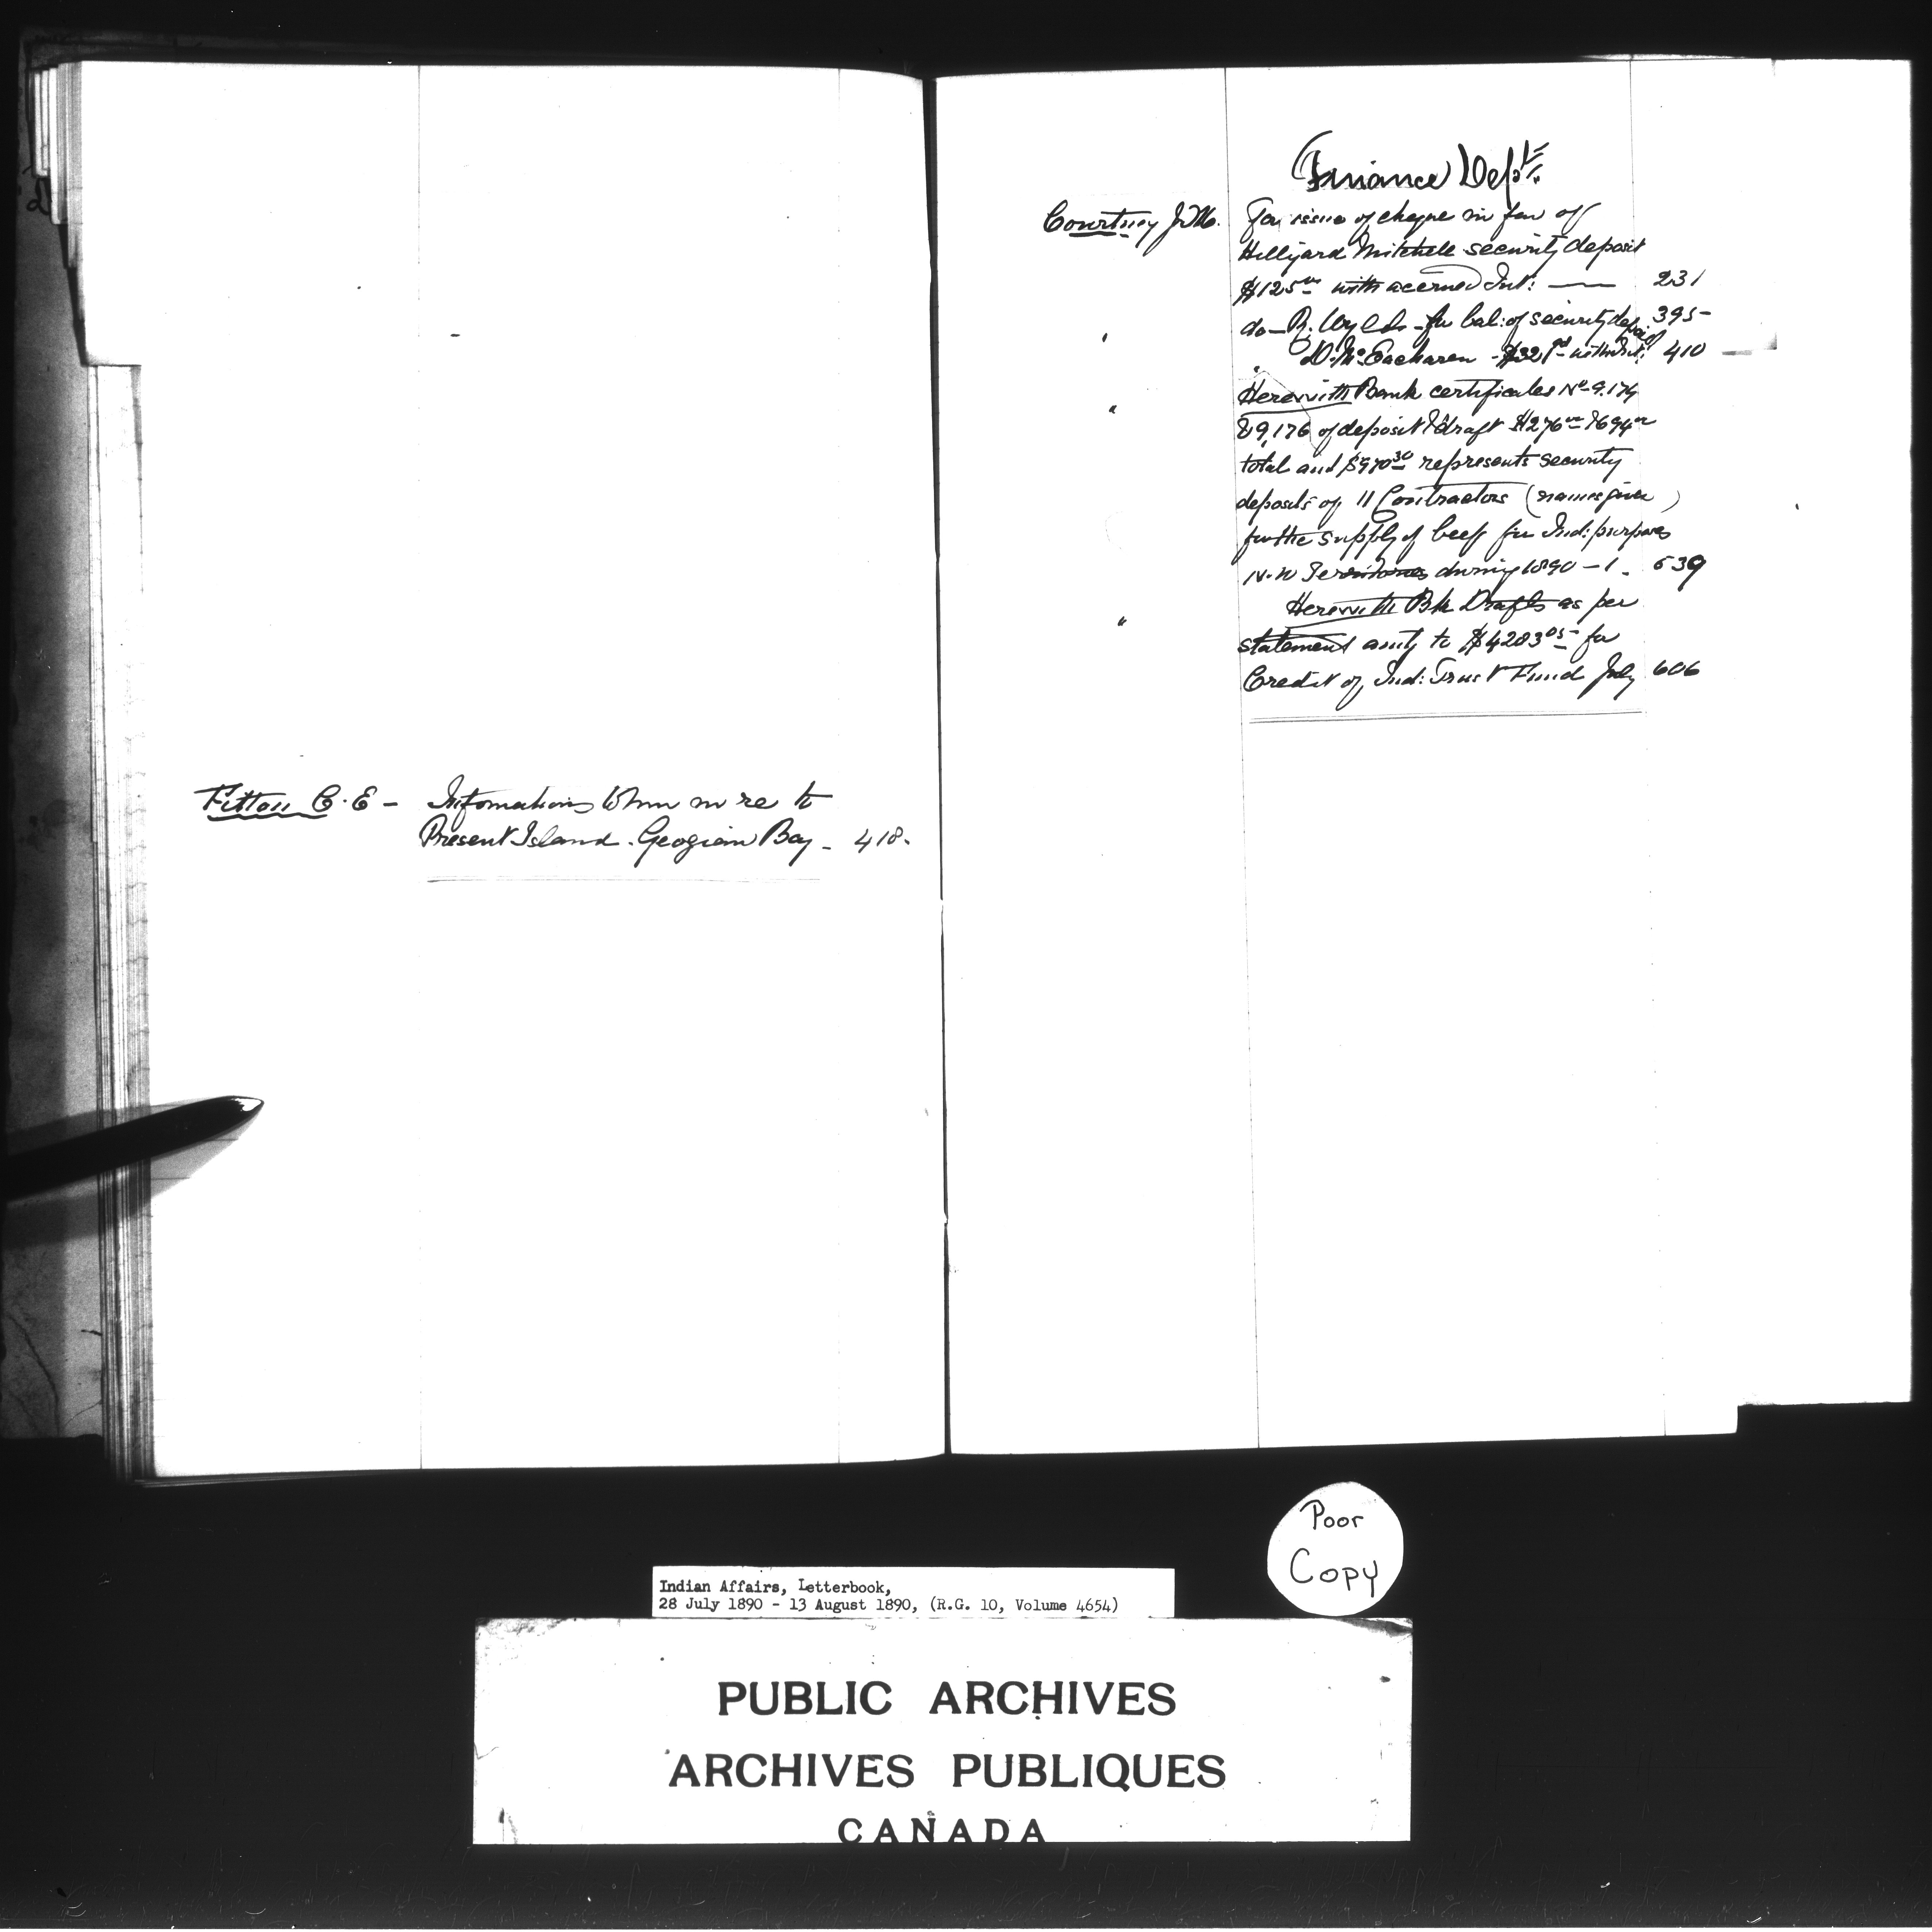 Fitton C. E - Informations to him in re to
Present Island. Geogian Bay - 418.
Finance Dept.
Courtney J. M. For issue of cheque in fav of
Hillyard Mitchell security deposit
$125 00 with accrued Int: — 231
do - R. Wylds - for bal: of security deposit 395 -
" D. McEacharen - $32 with Int: 410
" Herewith Bank certificates No 9.174
& 9,176 of deposit & draft $276 00 & 694 00
total amt $970 30 represents security
deposits of 11 Contractors (names given)
for the supply of beef for Ind: purposes
N. W Territories during 1890 - 1 - 539
" Herewith Bk Drafts as per
statement amtg to $4203 05 for
Credit of Ind: Trust Fund July 606
Poor
Copy
Indian Affairs, Letterbook,
28 July 1890 - 13 August 1890, (R.G. 10, Volume 4654)
PUBLIC ARCHIVES
ARCHIVES PUBLIQUES
CANADA